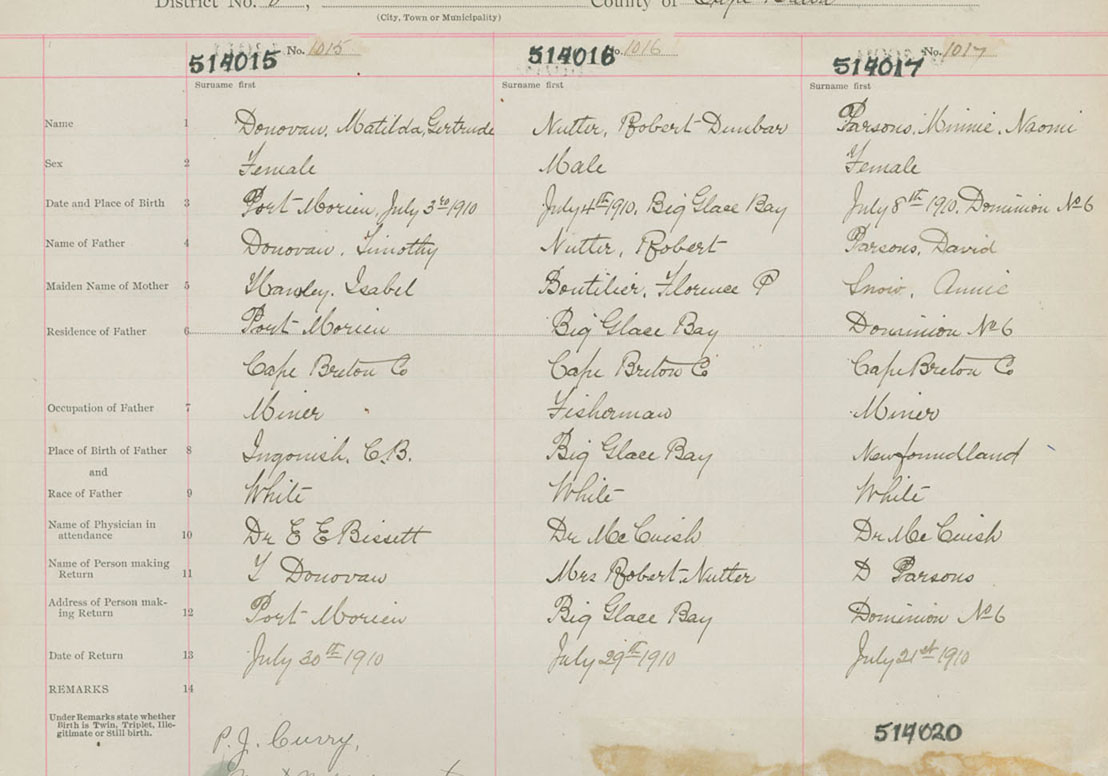 District No. County of Cape Breton
(City, Town or Municipality)
514015 No. 1015 514016 No. 1016 514017 No. 1017
Surname first Surname first Surname first
Name 1 Donovan, Matilda, Gertrude Nutter, Robert Dunbar Parsons, Minnie, Naomi
Sex 2 Female Male Female
Date and Place of Birth 3 Port Morien, July 3rd 1910 July 4th 1910, Big Glace Bay July 8th 1910, Dominion No 6
Name of Father 4 Donovan, Timothy Nutter, Robert Parsons, David
Maiden Name of Mother 5 Isabel Boutilier, Florence P Snow, Annie
Residence of Father 6 Port Morien Big Glace Bay Dominion No 6
Cape Breton Co Cape Breton Co Cape Breton Co
Occupation of Father 7 Miner Fisherman Miner
Place of Birth of Father 8 Ingonish, C.B. Big Glace Bay Newfoundland
and
Race of Father 9 White White White
Name of Physician in
attendance 10 Dr E E Bissett Dr McCuish Dr McCuish
Name of Person making
Return 11 T Donovan Mrs Robert Nutter D Parsons
Address of Person mak-
ing Return 12 Port Morien Big Glace Bay Dominion No 6
Date of Return 13 July 30th 1910 July 29th 1910 July 21st 1910
REMARKS 14
Under Remarks state whether
Birth is Twin, Triplet, Ille-
gitimate or Still birth.
514020
P.J. Curry,